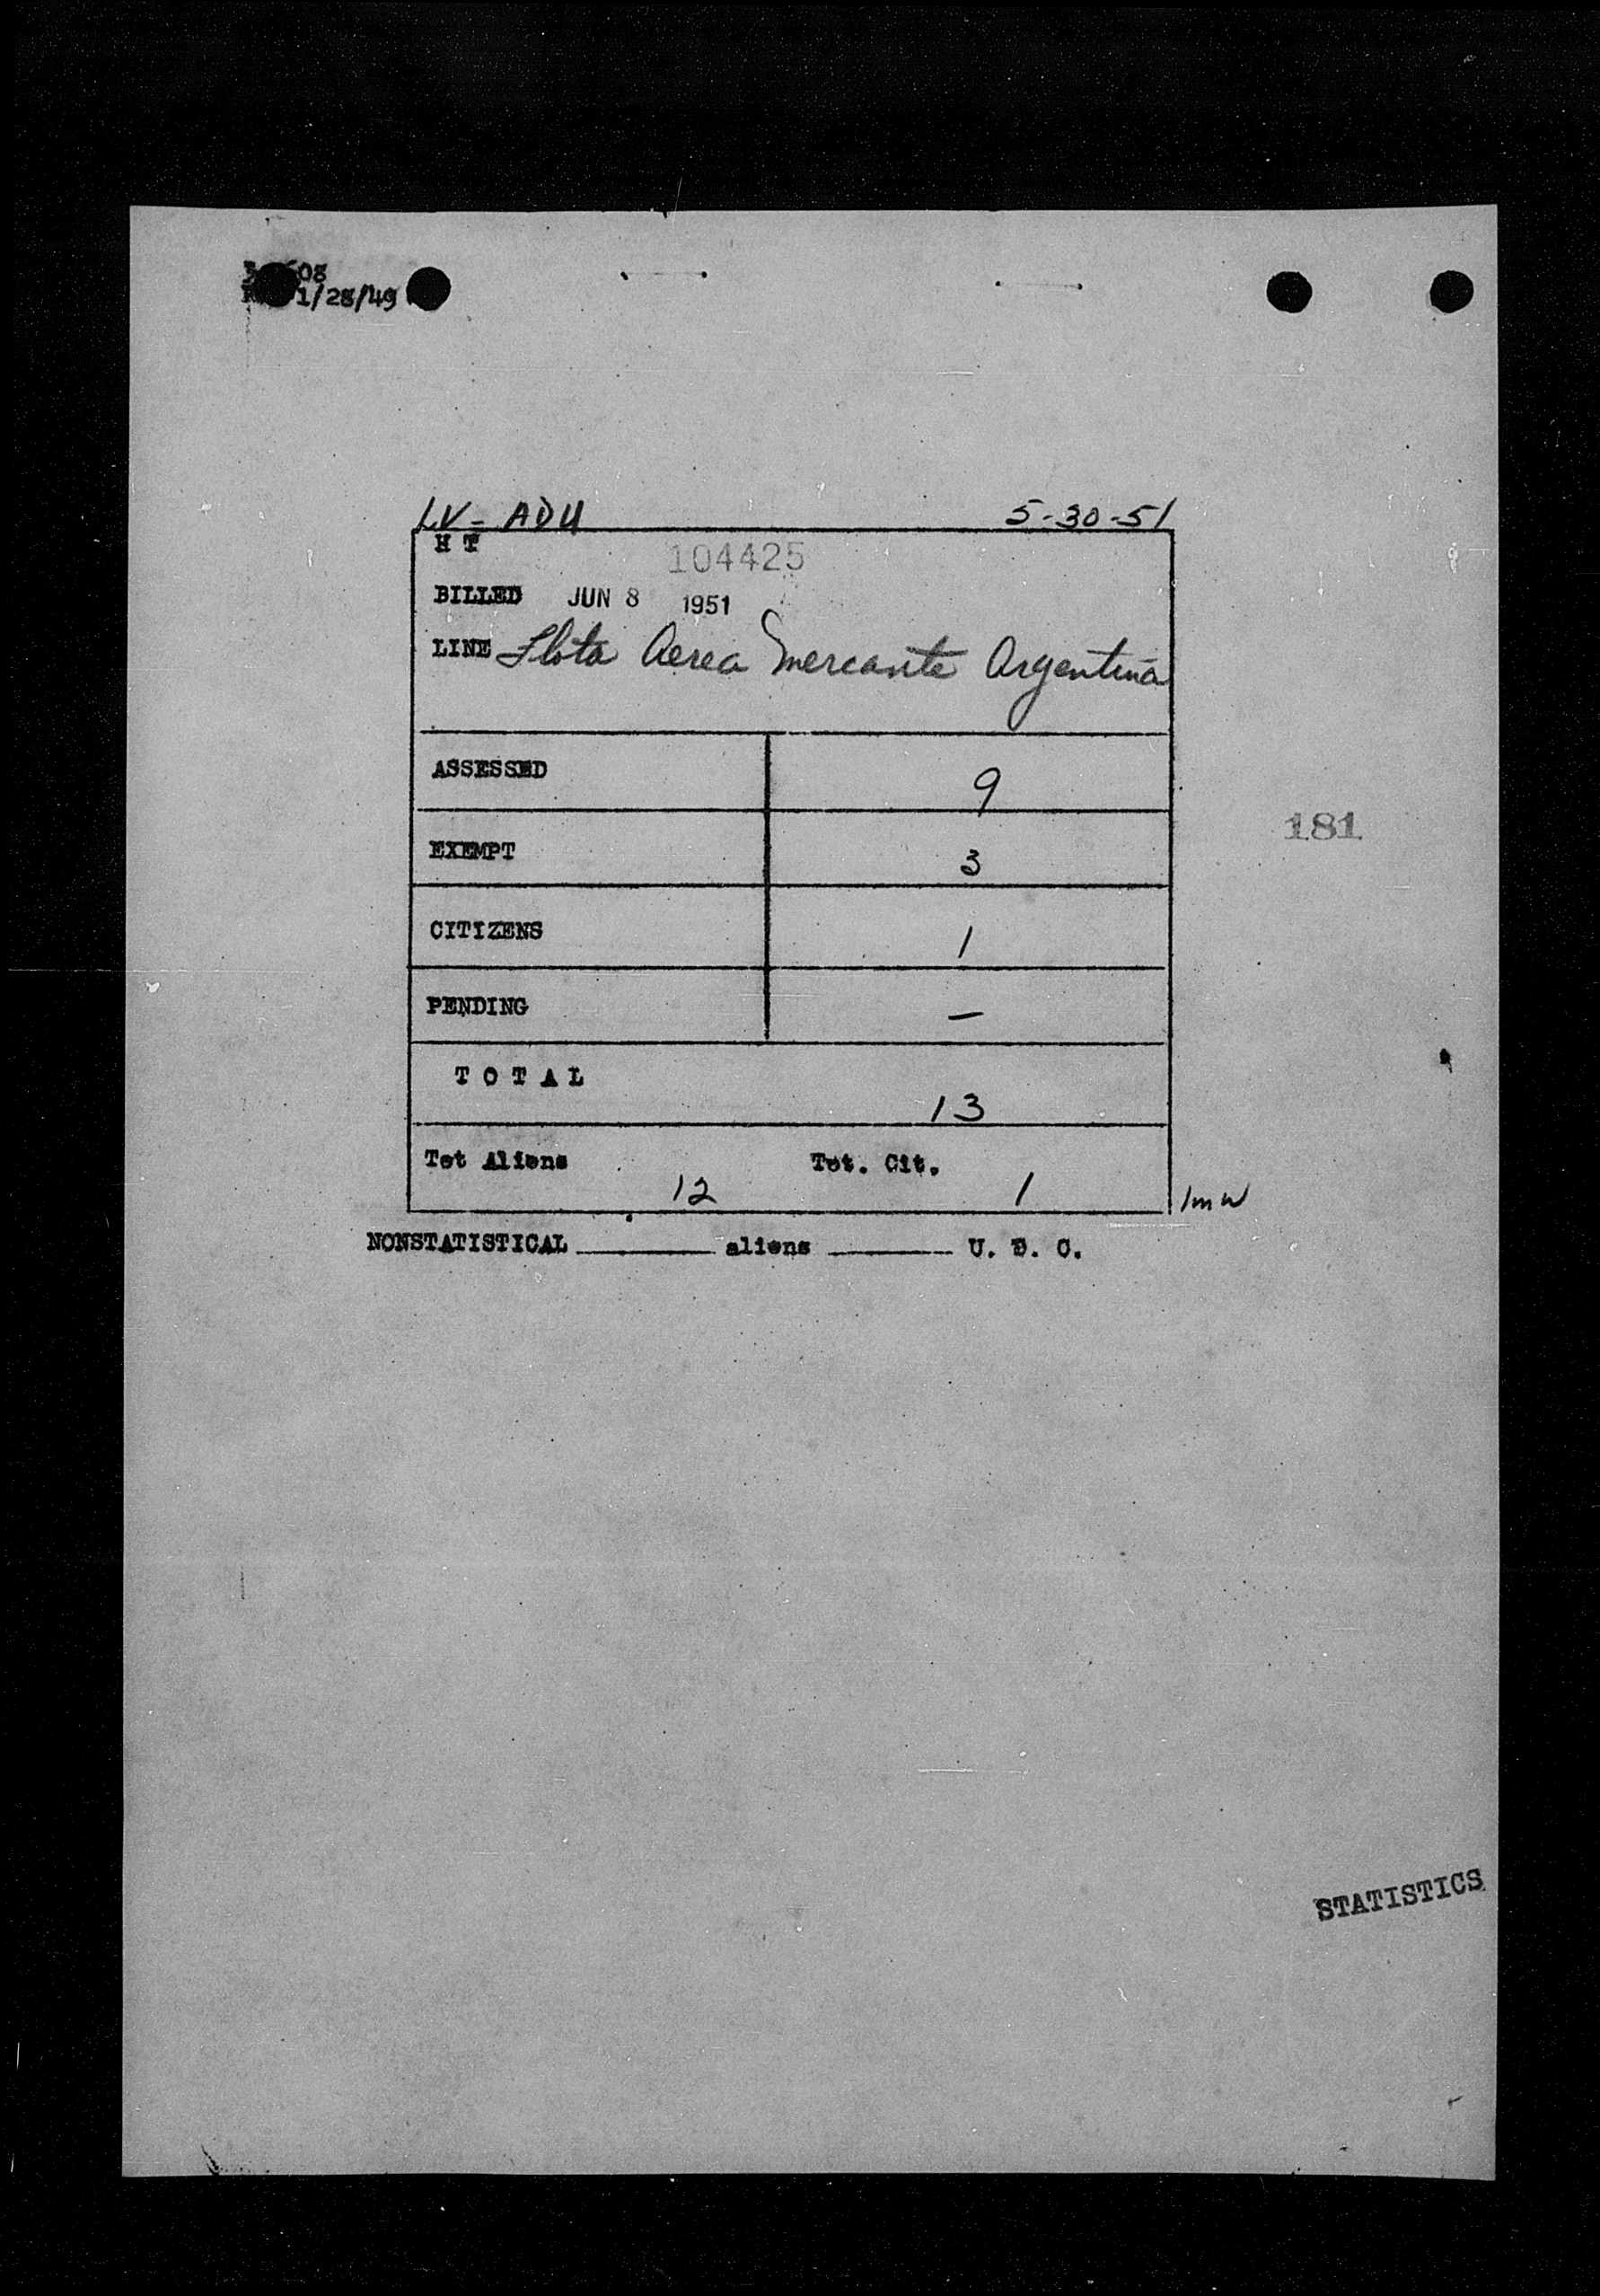 08
1/28/49
LV-ADU 5-30-51
H T
104425
BILLED JUN 8 1951
LINE Flota Aerea Mercante Argentina
ASSESSED 9
EXEMPT 3
181
CITIZENS 1
PENDING —
T O T A L
13
Tot Aliens 12 Tot. Cit. 1
lmw
NONSTATISTICAL ______ aliens ______ U. S. C.
STATISTICS